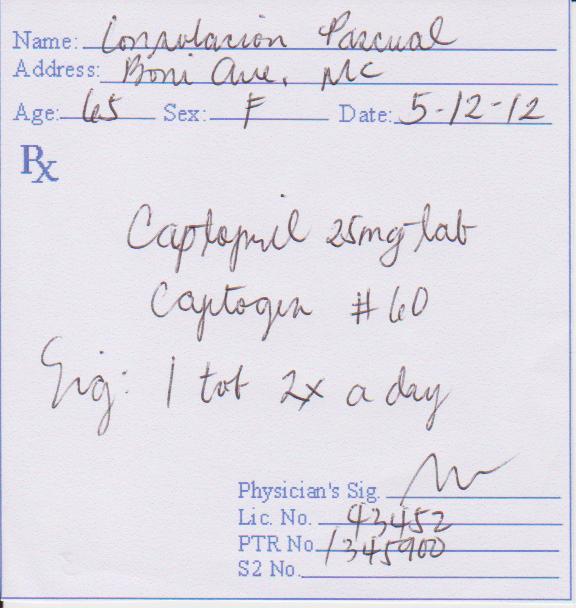 Name: Consolacion Pascual
Address: Boni Ave. MC
Age: 65 Sex: F Date: 5-12-12
Rx
Captopril 25mg tab
Captogen #60
Sig: 1 tab 2x a day
Physician's Sig.
Lic. No. 43452
PTR No. 1345900
S2 No.